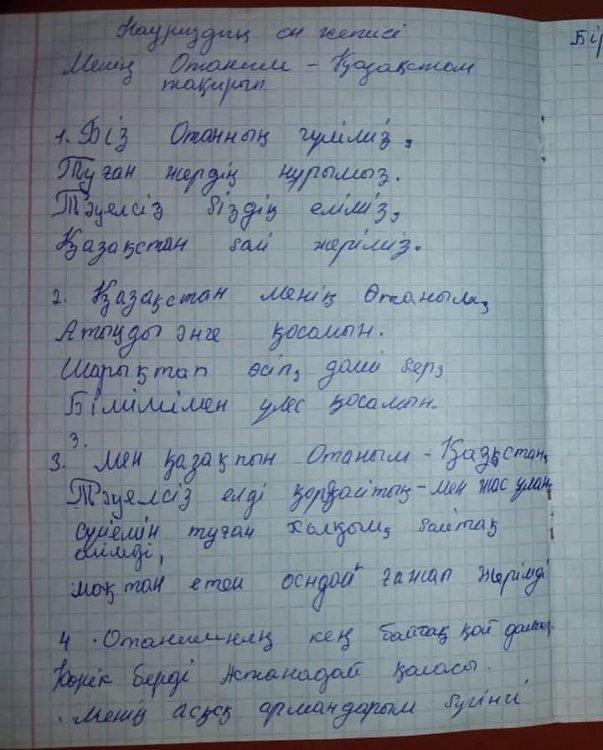 Наурыздың он жетісі
Бір
Менің Отаным - Қазақстан
тақырып.
1. Біз Отанның гүліміз,
Туған жердің нұрымыз.
Тәуелсіз біздің еліміз,
Қазақстан бай жеріміз.
2. Қазақстан менің Отаным,
Атыңды әнге қосамын.
Шарықтап өсіп, дами бер,
Біліміммен үлес қосамын.
3.
3. Мен қазақпын Отаным - Қазақстан,
Тәуелсіз елді қорғайтын - мен жас ұлан,
сүйемін туған халқым, байтақ
елімді,
мақтан етем осндай ғажап жерімді
4. Отанымның кең байтақ қой даласы,
Көрік берді Астанадай қаласы.
Менің асқақ армандарым бүгінгі